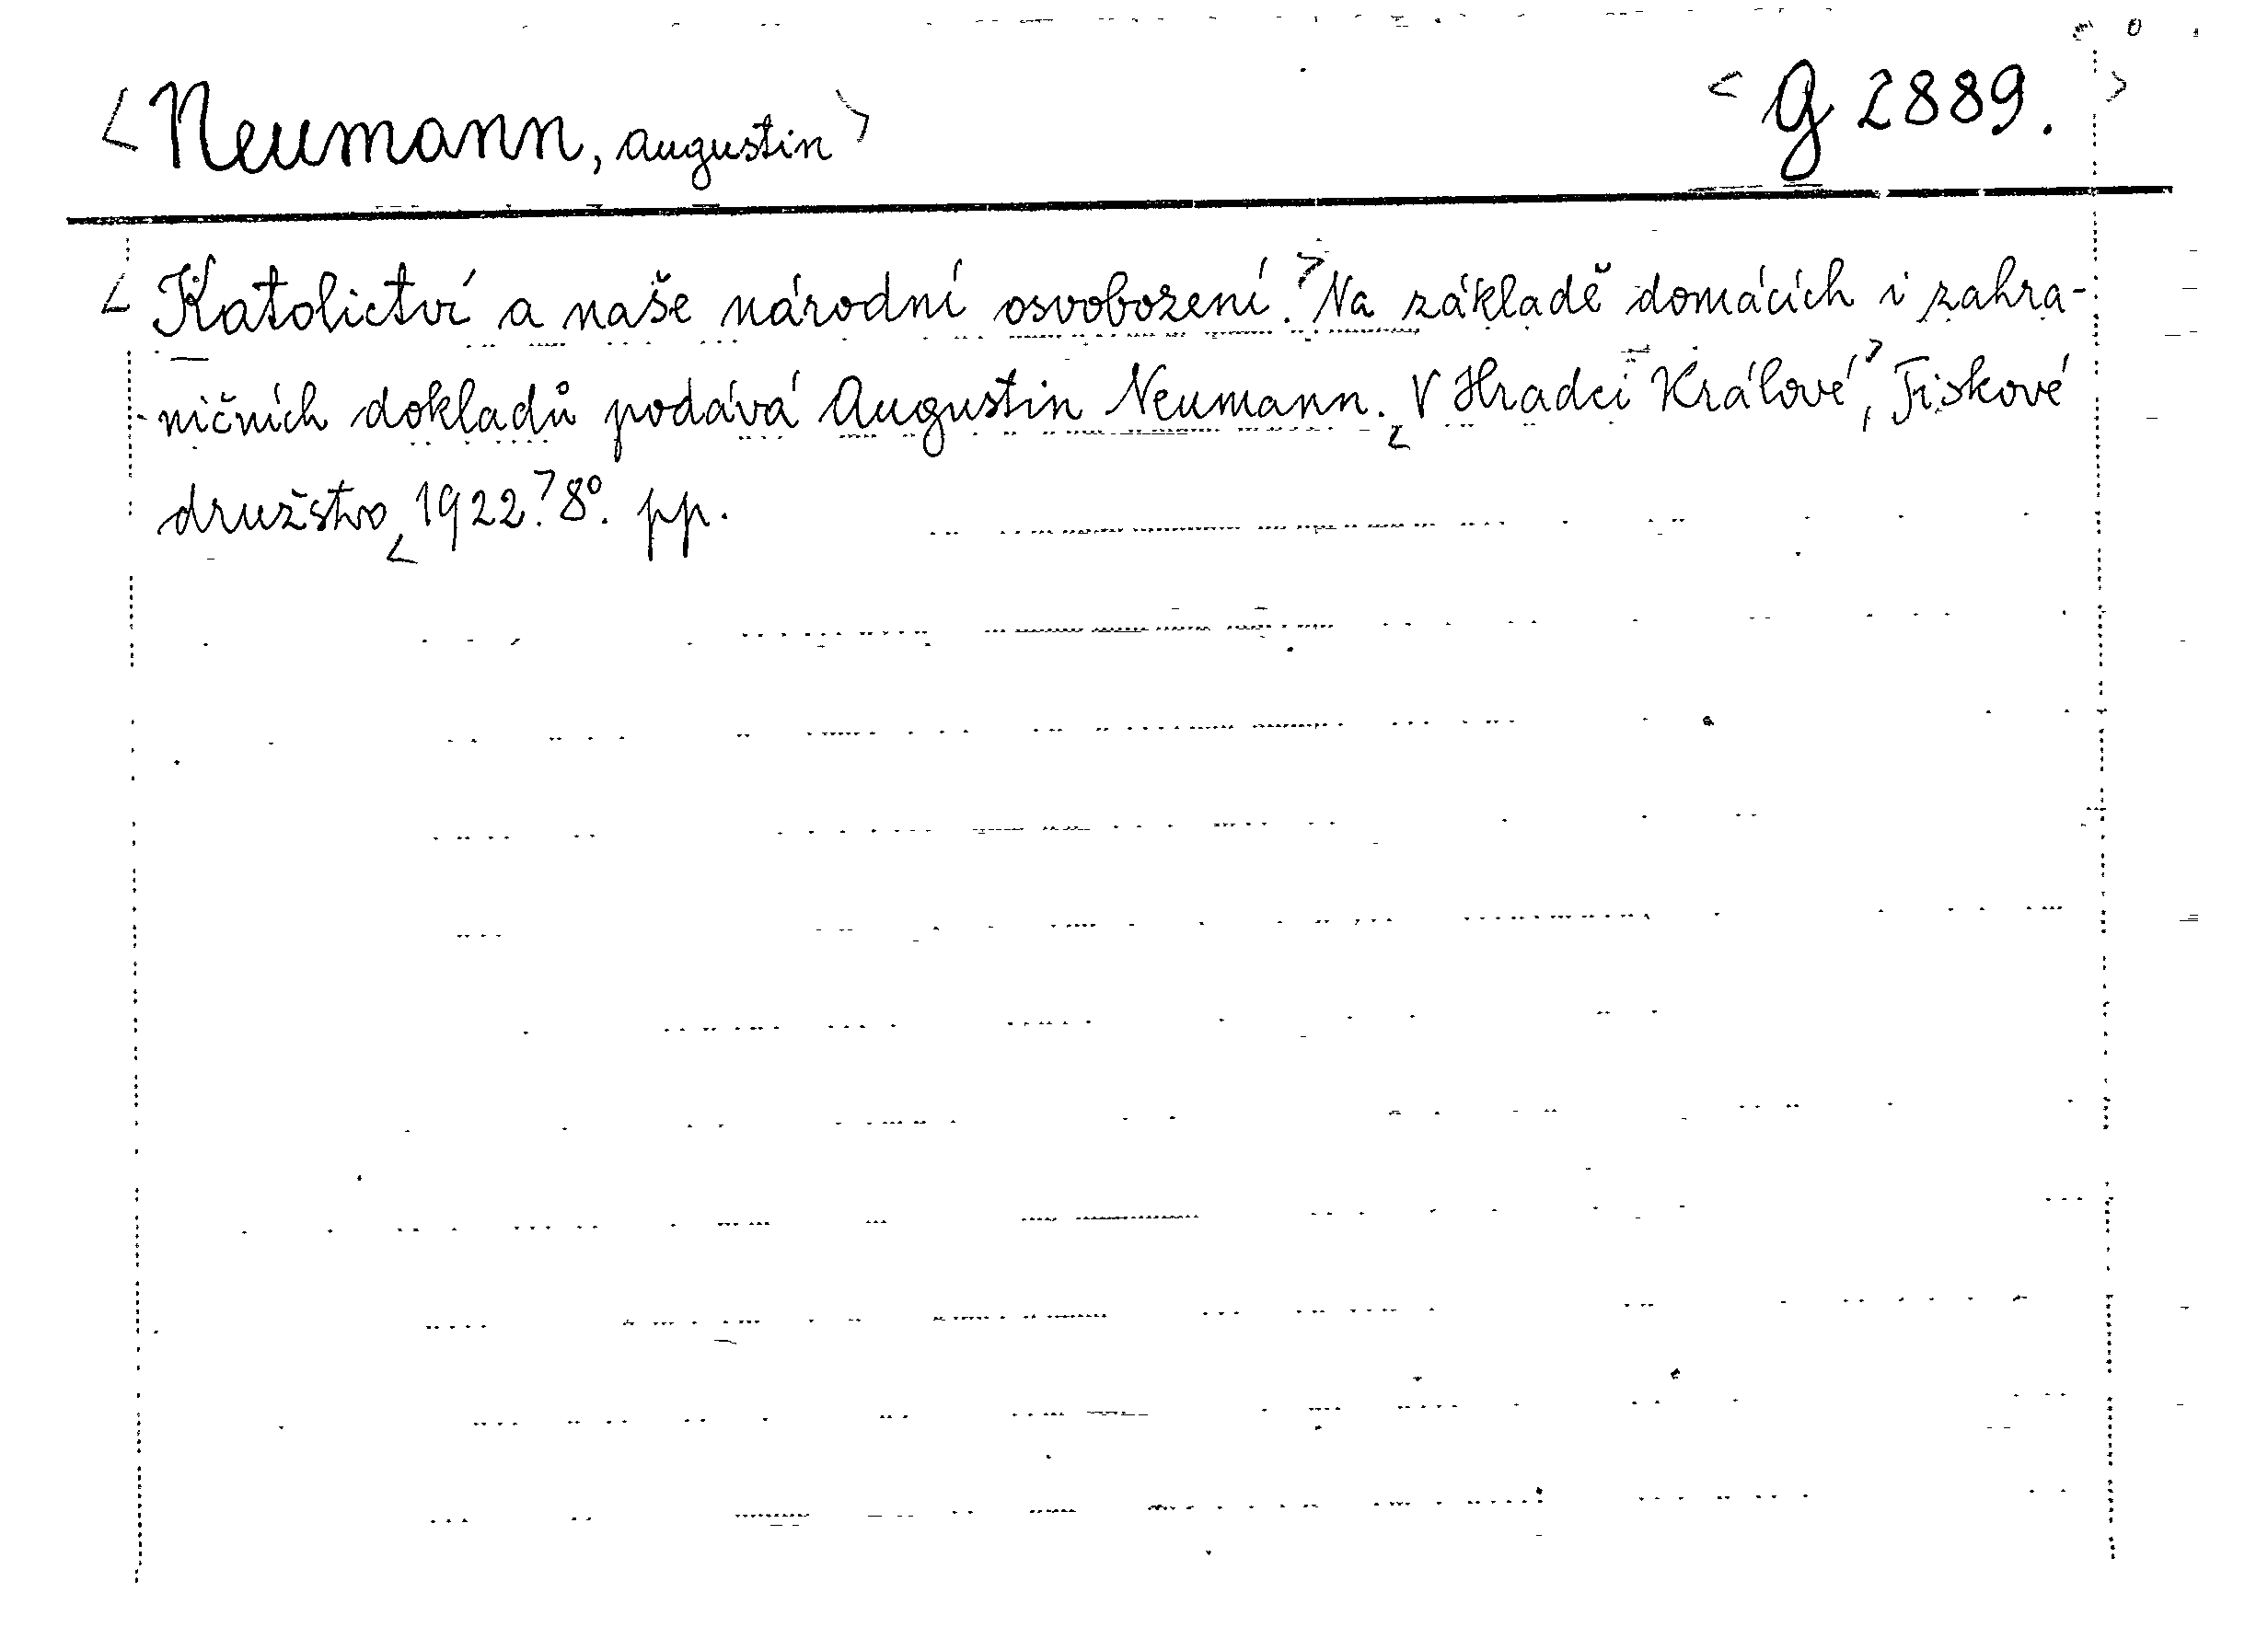 <Neumann, Augustin> <G 2889.>
<Katolictví a naše národní osvobození.> Na základě domácích i zahra-
ničních dokladů podává Augustin Neumann. <V Hradci Králové>, Tiskové
družstvo, <1922.> 8°. pp.